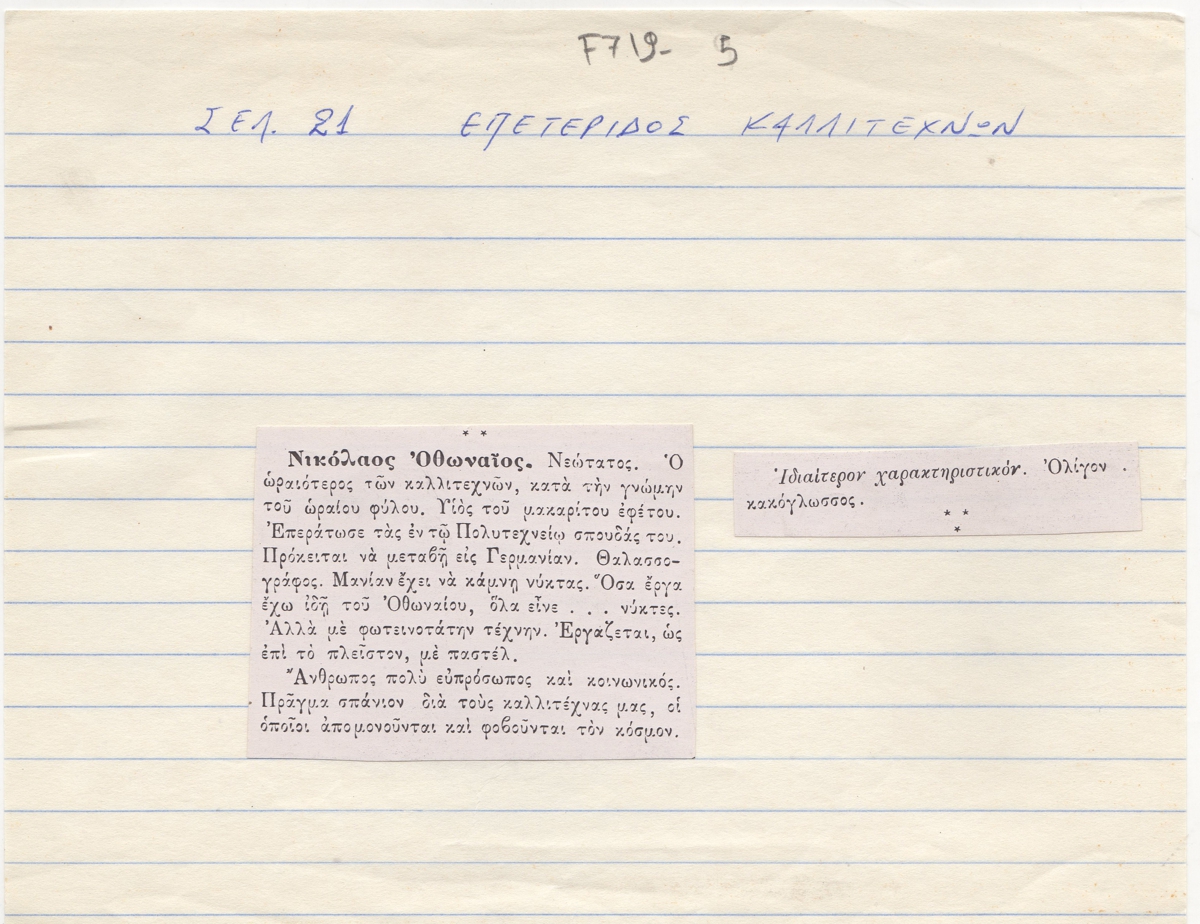 F719- 5
ΣΕΛ. 21 ΕΠΕΤΕΡΙΔΟΣ ΚΑΛΛΙΤΕΧΝΩΝ
* *
Νικόλαος Ὀθωναῖος. Νεώτατος. Ὁ
ὡραιότερος τῶν καλλιτεχνῶν, κατὰ τὴν γνώμην
τοῦ ὡραίου φύλου. Υἱὸς τοῦ μακαρίτου ἐφέτου.
Ἐπεράτωσε τὰς ἐν τῷ Πολυτεχνείῳ σπουδάς του.
Πρόκειται νὰ μεταβῇ εἰς Γερμανίαν. Θαλασσο-
γράφος. Μανίαν ἔχει νὰ κάμνῃ νύκτας. Ὅσα ἔργα
ἔχω ἰδῇ τοῦ Ὀθωναίου, ὅλα εἶνε . . . νύκτες.
Ἀλλὰ μὲ φωτεινοτάτην τέχνην. Ἐργάζεται, ὡς
ἐπὶ τὸ πλεῖστον, μὲ παστέλ.
Ἄνθρωπος πολὺ εὐπρόσωπος καὶ κοινωνικός.
Πρᾶγμα σπάνιον διὰ τοὺς καλλιτέχνας μας, οἱ
ὁποῖοι ἀπομονοῦνται καὶ φοβοῦνται τὸν κόσμον.
Ἰδιαίτερον χαρακτηριστικόν. Ὀλίγον .
κακόγλωσσος.
* *
*